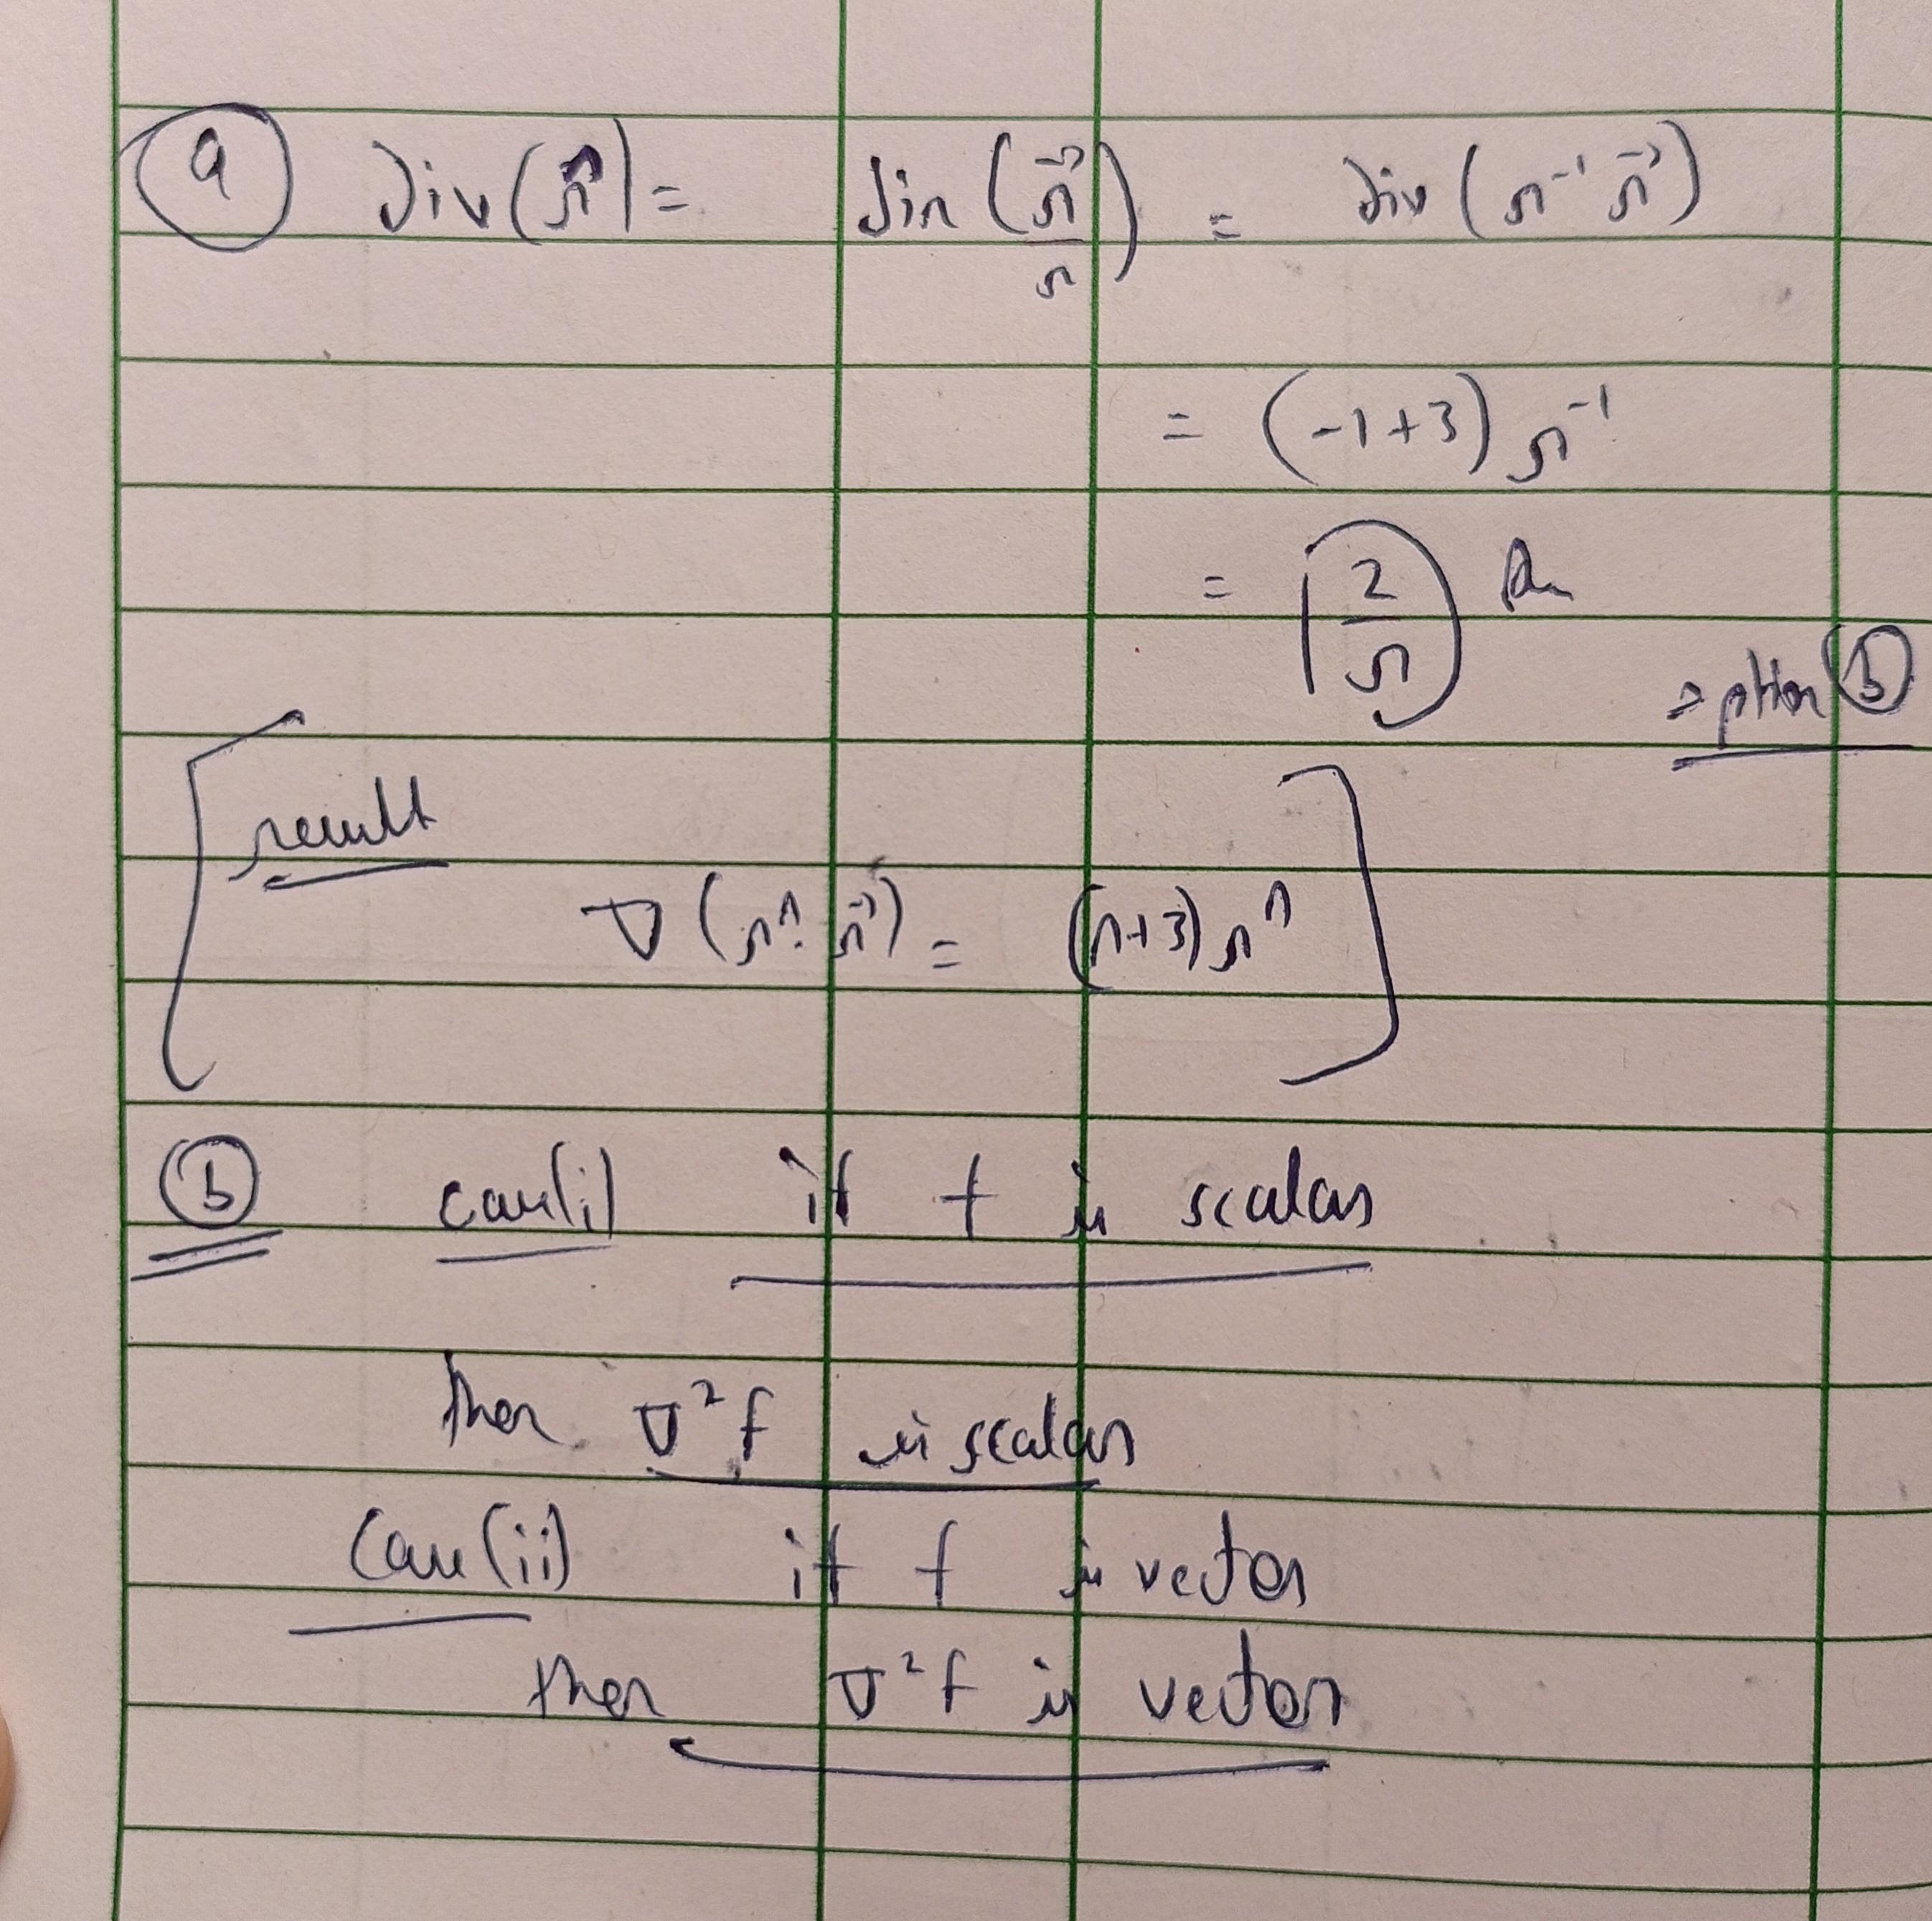 (a) div(r̂) = div(r⃗/r) = div(r⁻¹ r⃗)
= (-1+3) r⁻¹
= (2/r) Ans
option (b)
result
∇(rⁿ· r⃗) = (n+3) rⁿ
(b) case(i) if f is scalar
then ∇²f is scalar
Case(ii) if f is vector
then ∇²f is vector